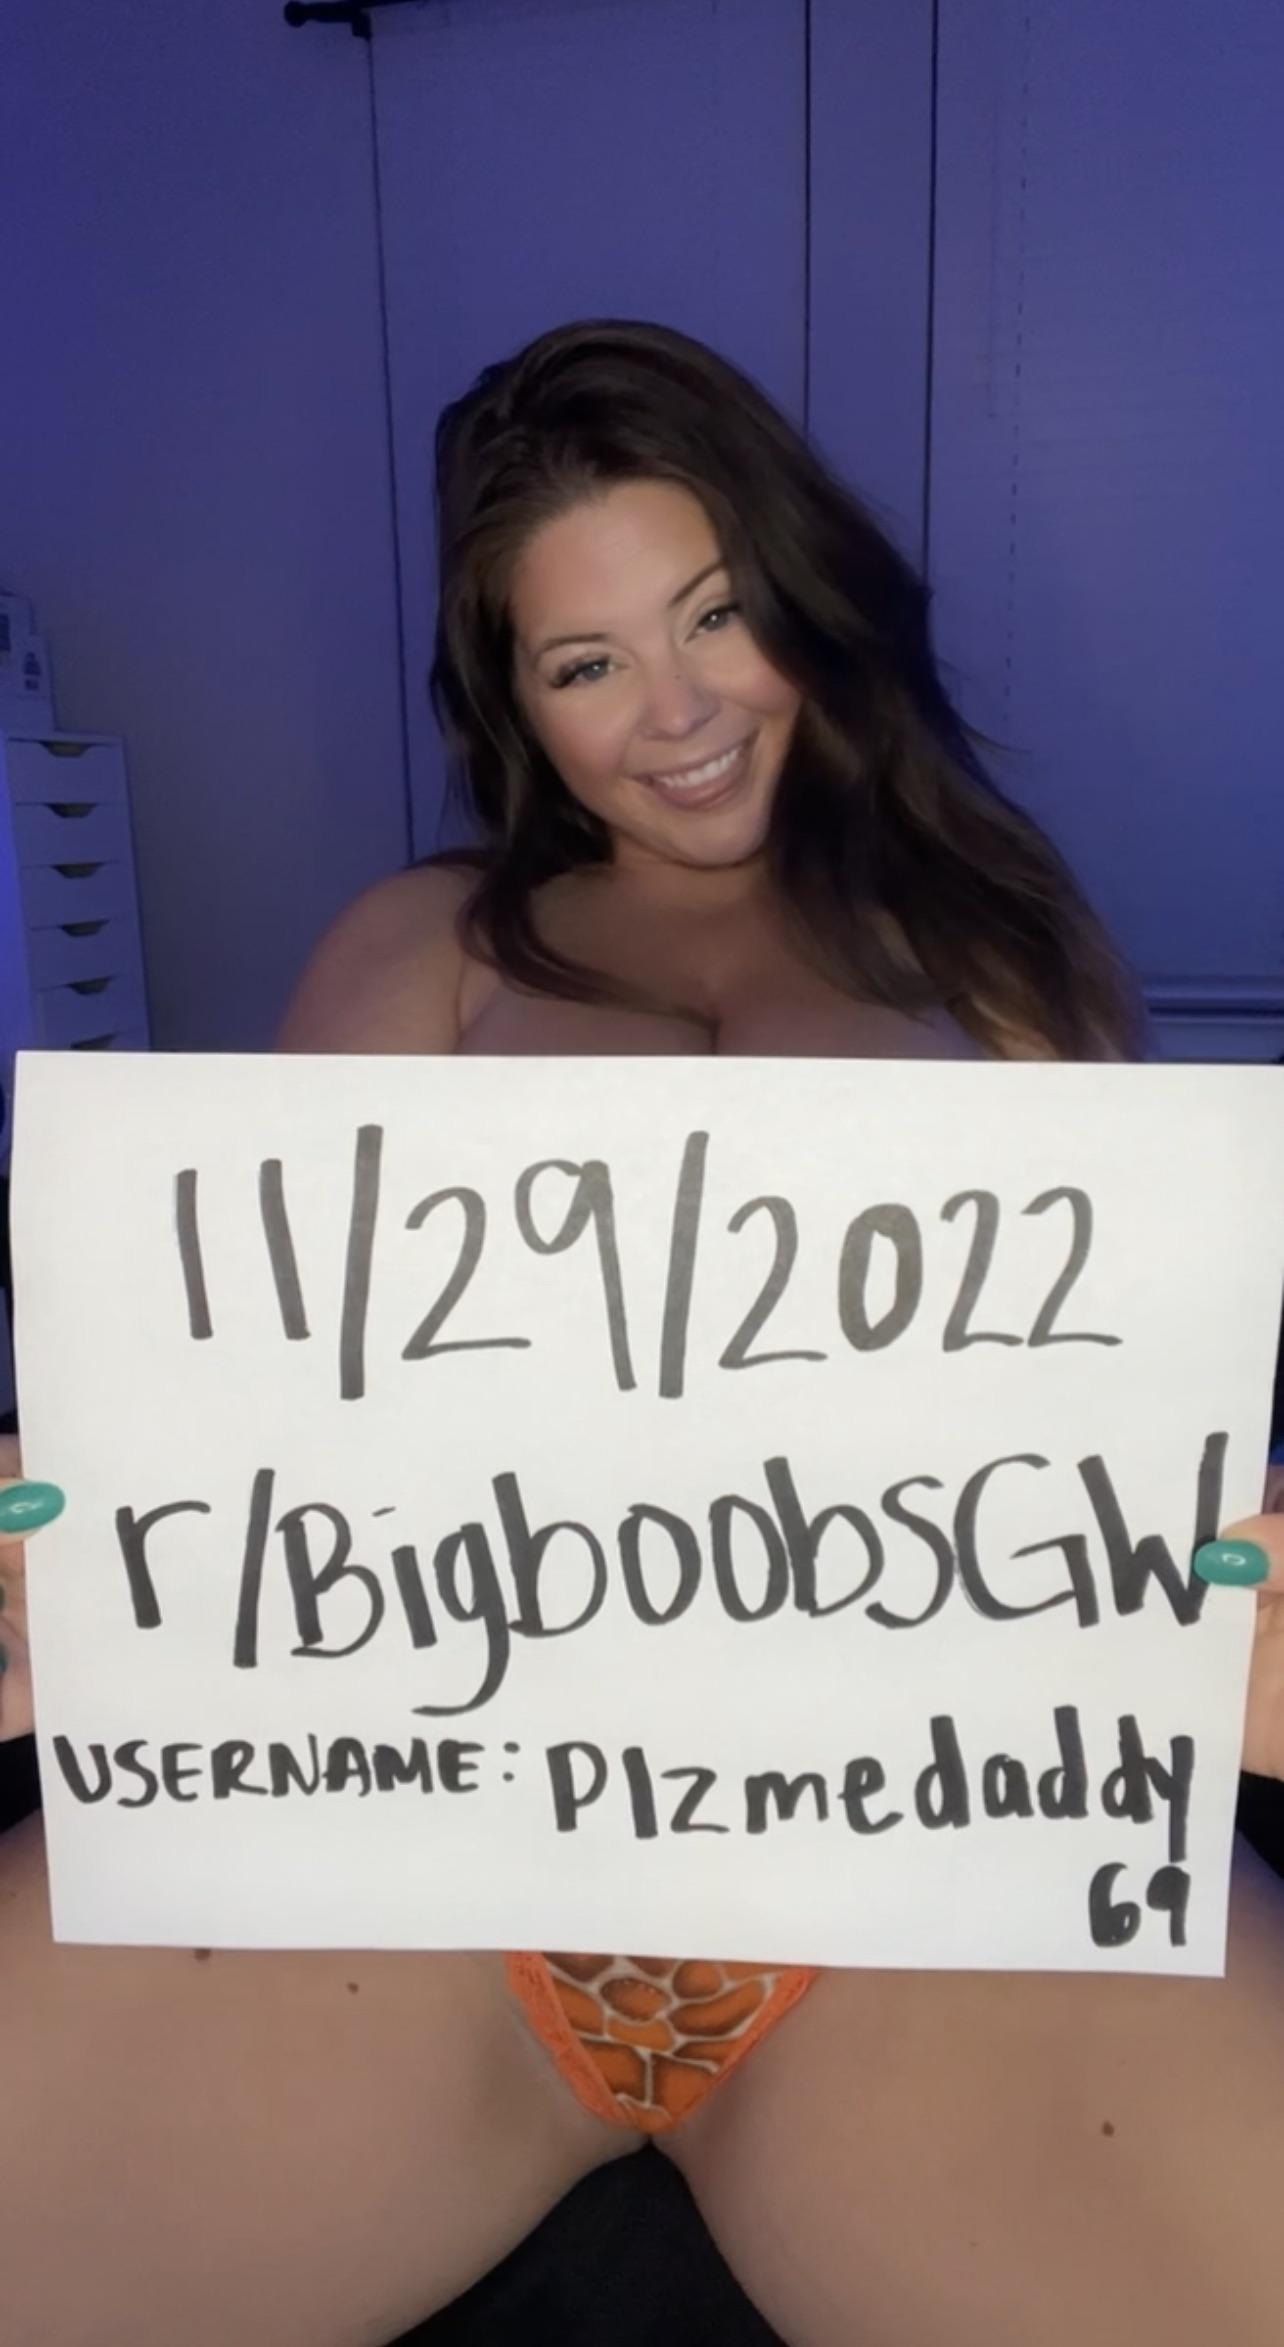 11/29/2022
r/BigboobsGW
USERNAME: Plzmedaddy
69